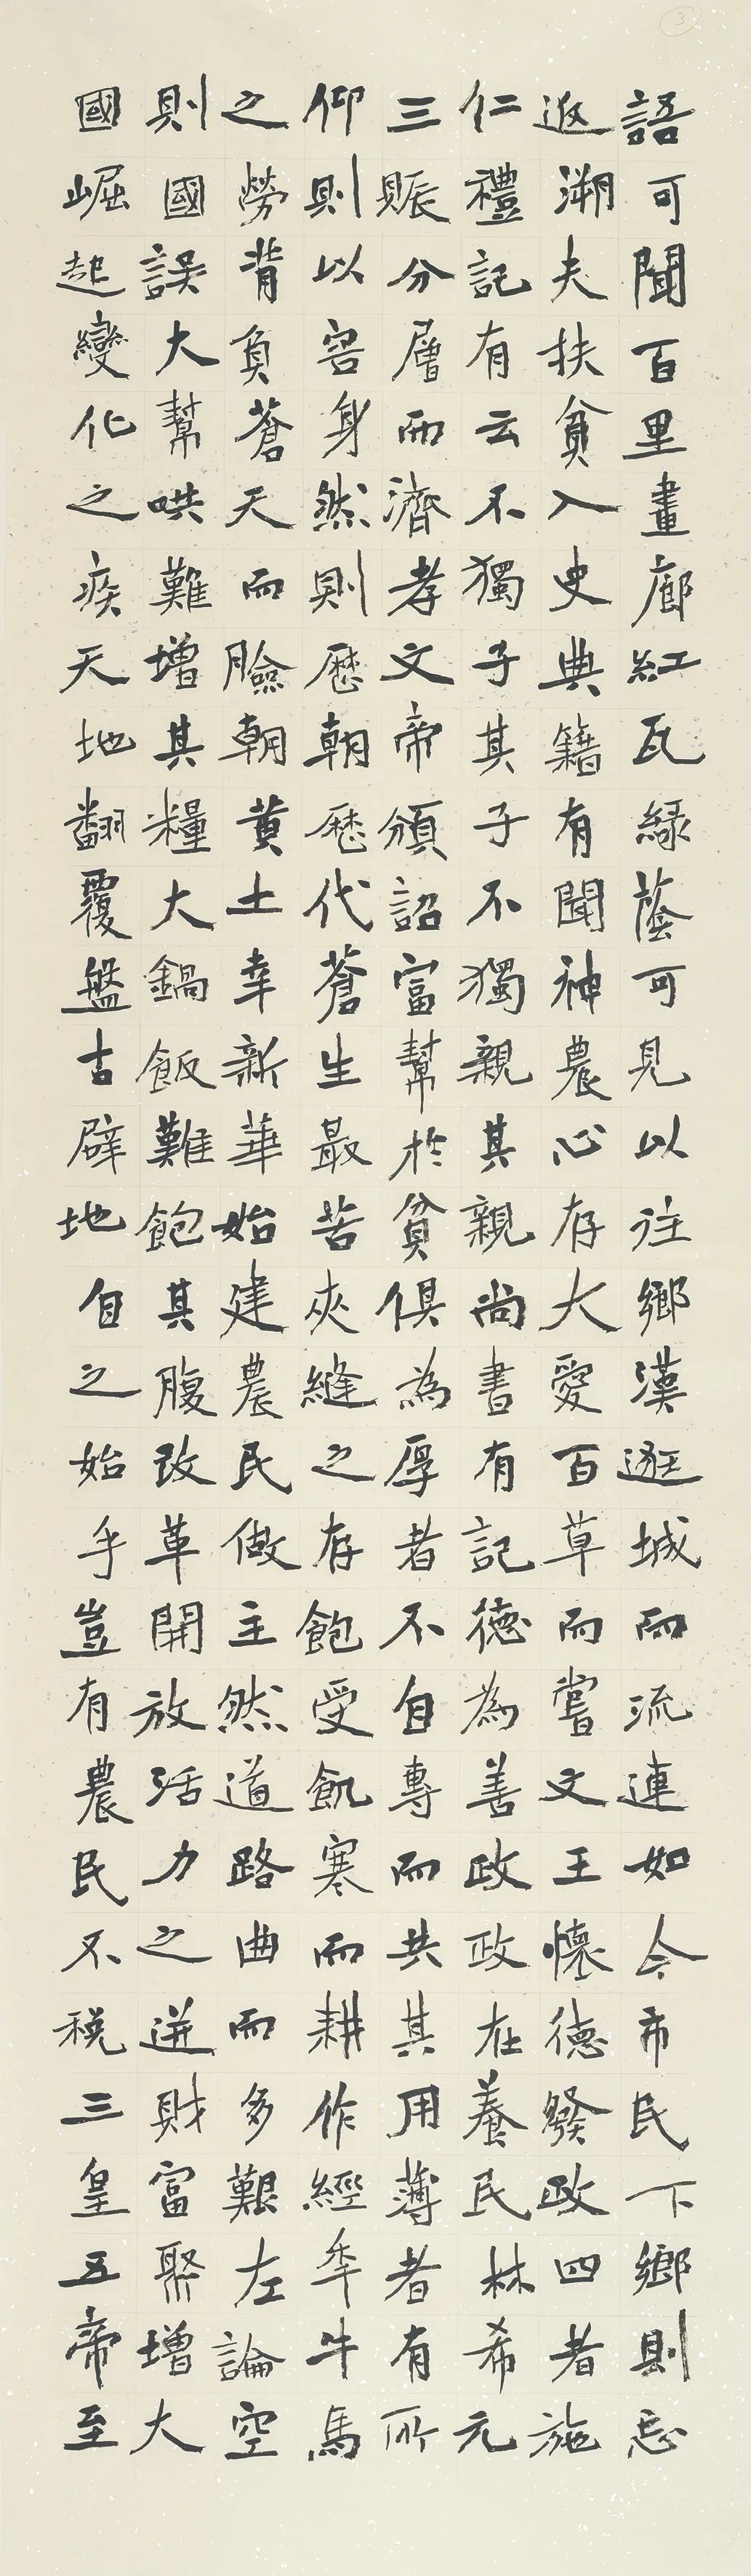 語可聞百里畫廊紅瓦綠蔭可見以往鄉漢逛城而流連如今市民下鄉則忘
返溯夫扶貧入史典籍有聞神農心存大愛百草而嘗文王懷德發政四者施
仁禮記有云不獨子其子不獨親其親尚書有記德為善政政在養民林希元
三賑分層而濟孝文帝頒詔富幫於貧俱為厚者不自專而共其用薄者有所
仰則以容身然則歷朝歷代蒼生最苦夾縫之存飽受飢寒而耕作經年牛馬
之勞背負蒼天而臉朝黃土幸新華始建農民做主然道路曲而多艱左論空
則國誤大幫哄難增其糧大鍋飯難飽其腹改革開放活力之迸財富聚增大
國崛起變化之疾天地翻覆盤古辟地自之始乎豈有農民不稅三皇五帝至
3